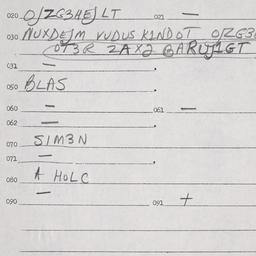 020 O/ZG3HEJ LT 021 —
030 NUXDEJM VUDUS K1NDOT O/ZG3
OT3R ZAX2 BARUJ1GT
031 —
050 BLAS
060 — 061 —
062 —
070 S1M3N
071 —
080 A HOLC
090 — 091 +